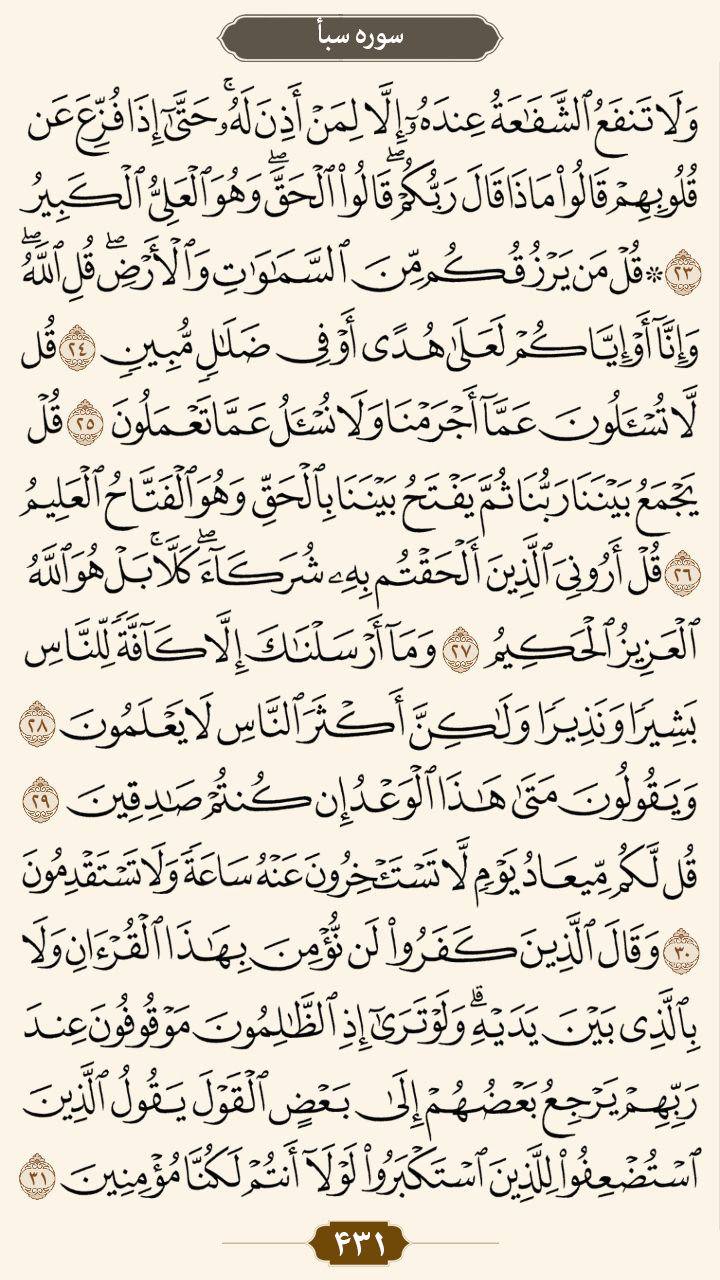 سوره سبأ
وَلَا تَنفَعُ ٱلشَّفَٰعَةُ عِندَهُۥٓ إِلَّا لِمَنْ أَذِنَ لَهُۥۚ حَتَّىٰٓ إِذَا فُزِّعَ عَن
قُلُوبِهِمْ قَالُوا۟ مَاذَا قَالَ رَبُّكُمْۖ قَالُوا۟ ٱلْحَقَّۖ وَهُوَ ٱلْعَلِىُّ ٱلْكَبِيرُ
٢٣ ۞ قُلْ مَن يَرْزُقُكُم مِّنَ ٱلسَّمَٰوَٰتِ وَٱلْأَرْضِۖ قُلِ ٱللَّهُۖ
وَإِنَّآ أَوْ إِيَّاكُمْ لَعَلَىٰ هُدًى أَوْ فِى ضَلَٰلٍ مُّبِينٍ ٢٤ قُل
لَّا تُسْـَٔلُونَ عَمَّآ أَجْرَمْنَا وَلَا نُسْـَٔلُ عَمَّا تَعْمَلُونَ ٢٥ قُلْ
يَجْمَعُ بَيْنَنَا رَبُّنَا ثُمَّ يَفْتَحُ بَيْنَنَا بِٱلْحَقِّ وَهُوَ ٱلْفَتَّاحُ ٱلْعَلِيمُ
٢٦ قُلْ أَرُونِىَ ٱلَّذِينَ أَلْحَقْتُم بِهِۦ شُرَكَآءَۖ كَلَّاۚ بَلْ هُوَ ٱللَّهُ
ٱلْعَزِيزُ ٱلْحَكِيمُ ٢٧ وَمَآ أَرْسَلْنَٰكَ إِلَّا كَآفَّةً لِّلنَّاسِ
بَشِيرًا وَنَذِيرًا وَلَٰكِنَّ أَكْثَرَ ٱلنَّاسِ لَا يَعْلَمُونَ ٢٨
وَيَقُولُونَ مَتَىٰ هَٰذَا ٱلْوَعْدُ إِن كُنتُمْ صَٰدِقِينَ ٢٩
قُل لَّكُم مِّيعَادُ يَوْمٍ لَّا تَسْتَـْٔخِرُونَ عَنْهُ سَاعَةً وَلَا تَسْتَقْدِمُونَ
٣٠ وَقَالَ ٱلَّذِينَ كَفَرُوا۟ لَن نُّؤْمِنَ بِهَٰذَا ٱلْقُرْءَانِ وَلَا
بِٱلَّذِى بَيْنَ يَدَيْهِۗ وَلَوْ تَرَىٰٓ إِذِ ٱلظَّٰلِمُونَ مَوْقُوفُونَ عِندَ
رَبِّهِمْ يَرْجِعُ بَعْضُهُمْ إِلَىٰ بَعْضٍ ٱلْقَوْلَ يَقُولُ ٱلَّذِينَ
ٱسْتُضْعِفُوا۟ لِلَّذِينَ ٱسْتَكْبَرُوا۟ لَوْلَآ أَنتُمْ لَكُنَّا مُؤْمِنِينَ ٣١
۴۳۱